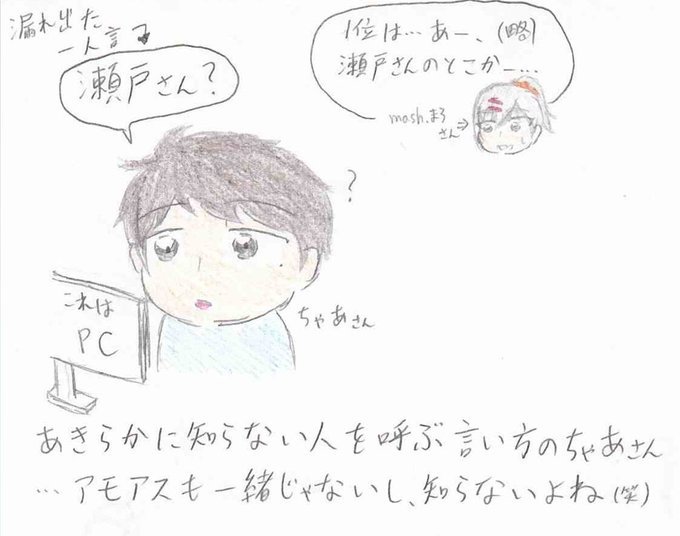 漏れ出た
一人言
瀬戸さん?
1位は…あー、(略)
瀬戸さんのとこかー…
mosh.まろ
さん→
?
これは
PC
ちゃあさん
あきらかに知らない人を呼ぶ言い方のちゃあさん
…アモアスも一緒じゃないし、知らないよね(笑)